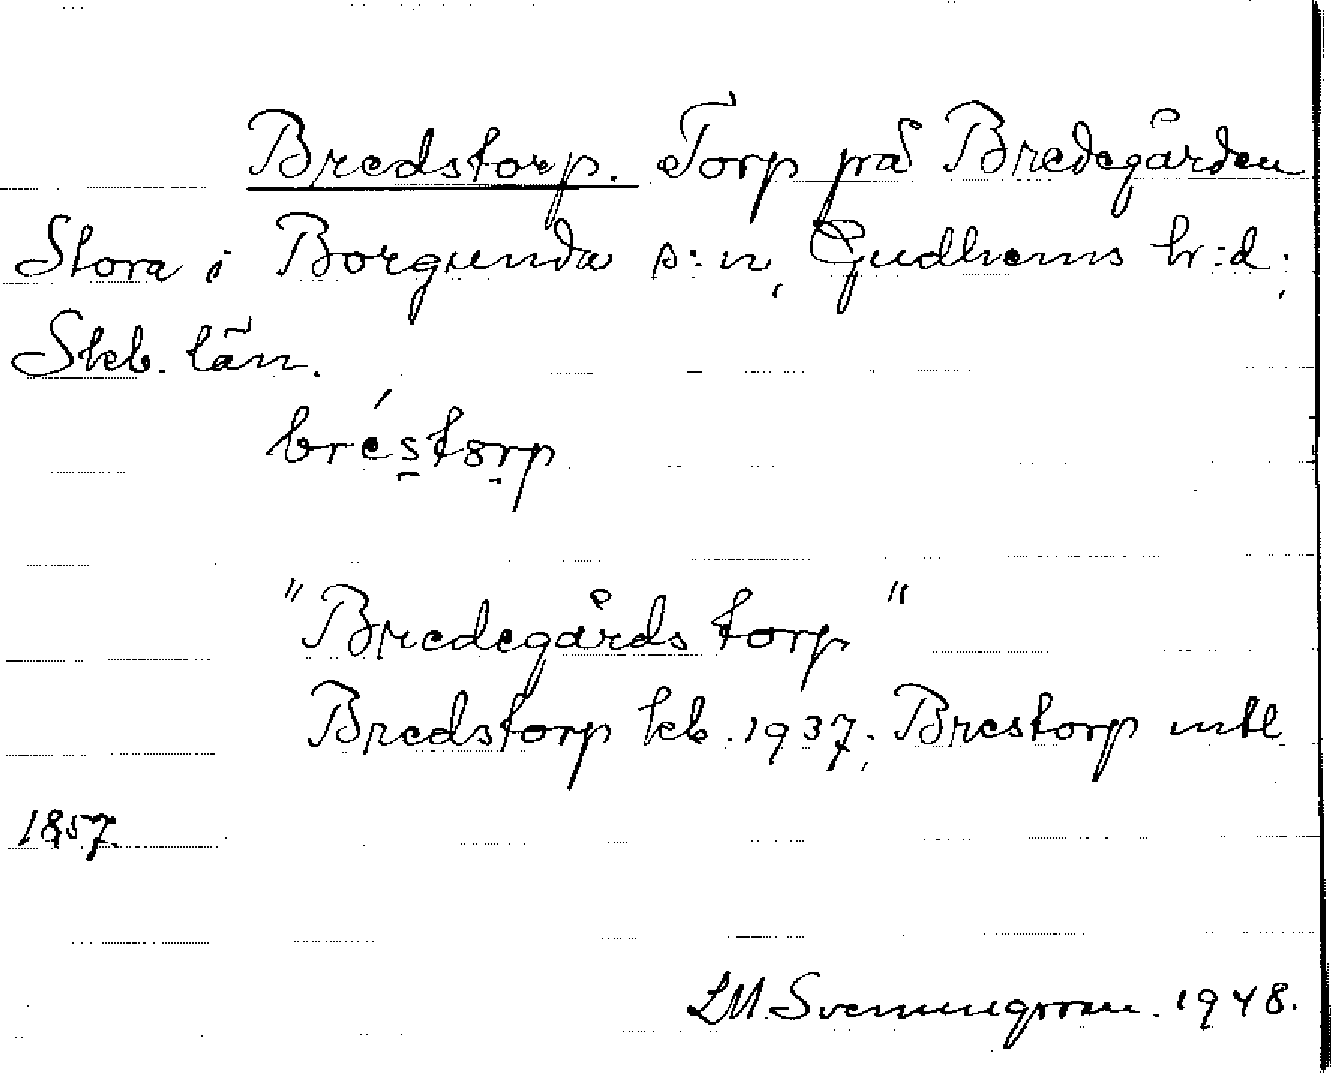 Bredstorp. Torp på Bredegården
Stora i Borgunda s:n, Gudhems hr:d;
Skb. län.
bréstorp
"Bredegårds torp"
Bredstorp kb. 1937; Brestorp mtl
1857.
LM. Svenungsson. 1948.